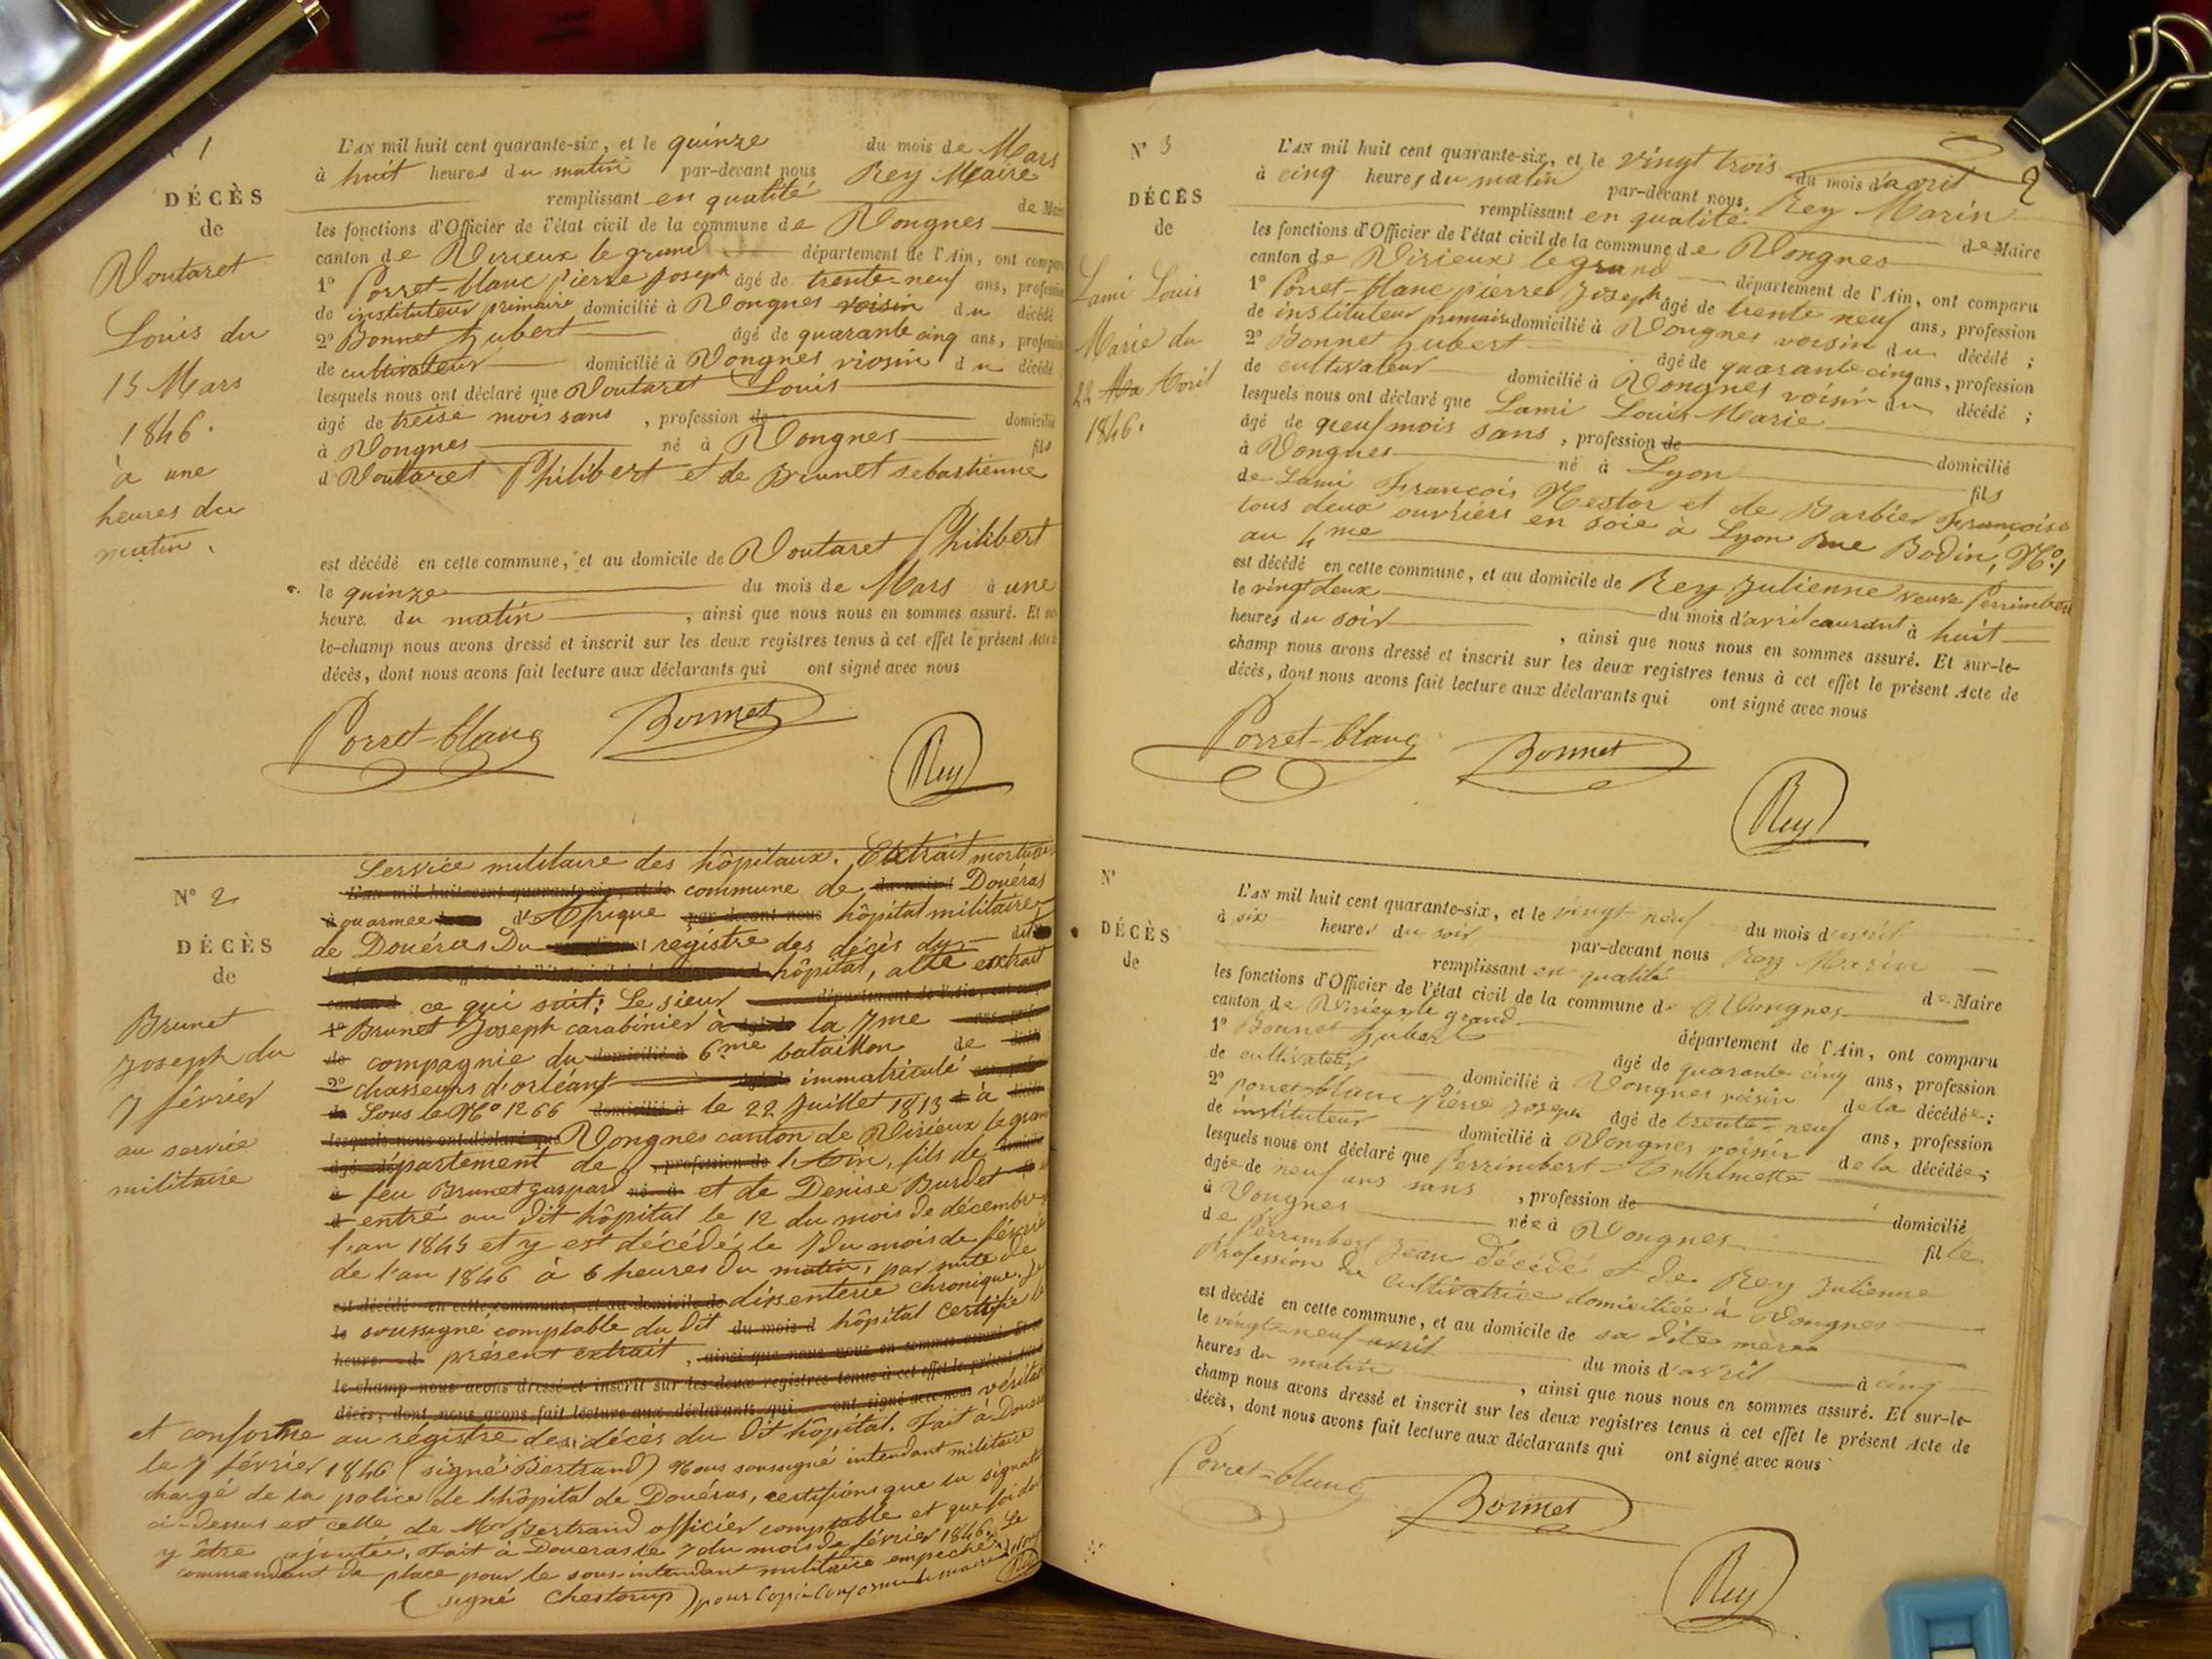 N° 1
DÉCÈS
de
Voutaret
Louis du
15 Mars
1846.
à une
heures du
matin.
L'AN mil huit cent quarante-six, et le quinze du mois de Mars
à huit heures du matin par-devant nous Rey Maire
remplissant en qualité de Maire
les fonctions d'Officier de l'état civil de la commune de Vongnes
canton de Virieux le grand département de l'Ain, ont comparu
1° Porret-blanc pierre joseph âgé de trente-neuf ans, profession
de instituteur primaire domicilié à Vongnes voisin du décédé
2° Bonnet hubert âgé de quarante cinq ans, profession
de cultivateur domicilié à Vongnes viosin du décédé
lesquels nous ont déclaré que Voutaret Louis
âgé de treise mois sans , profession de domicilié
à Vongnes né à Vongnes fils
d Voutaret Philibert et de Brunet sebastienne
est décédé en cette commune, et au domicile de Voutaret Philibert
le quinze du mois de Mars à une
heure du matin , ainsi que nous nous en sommes assuré. Et
le-champ nous avons dressé et inscrit sur les deux registres tenus à cet effet le présent Acte
décès, dont nous avons fait lecture aux déclarants qui ont signé avec nous
Porret-blanc Bonnet Rey
N° 2
DÉCÈS
de
Brunet
Joseph du
7 février
au service
militaire
Service militaire des hôpitaux. Extrait mortuaire
commune de Douéras
d'Afrique hôpital militaire
de Douéras Du registre des décès du dit
hôpital, a été extrait
ce qui suit: Le sieur
Brunet Joseph carabinier à la 7me
compagnie du 6me bataillon de
chasseurs d'orléans immatriculé
Sous le No 1266 le 22 Juillet 1813 à
Vongnes canton de Virieux le grand
département de l'Ain, fils de
feu Brunet gaspard et de Denise Burdet
entré au dit hôpital le 12 du mois de décembre
l'an 1845 et y est décédé le 7 du mois de février
de l'an 1846 à 6 heures du matin, par suite de
dissenterie chronique. Je
soussigné comptable du dit hôpital certifie le
présent extrait
véritable
et conforme au régistre des décès du dit hôpital. Fait à Doueras
le 7 février 1846 (signé Bertrand) Nous soussigné intendant militaire
chargé de la police de l'hôpital de Douéras, certifions que la signature
ci-dessus est celle de Mr Bertrand officier comptable et que foi doit
y être ajoutée. Fait à Doueras le 7 du mois de février 1846. Le
commandant de place pour le sous-intendant militaire empêché
(signé Chestorup) pour Copie Conforme le maire
N° 3
DÉCÈS
de
Lami Louis
Marie du
22 Avril
1846.
2
L'AN mil huit cent quarante-six, et le vingt trois du mois d'avril
à cinq heures du matin par-devant nous Rey Marin
remplissant en qualité de Maire
les fonctions d'Officier de l'état civil de la commune de Vongnes
canton de Virieux le grand département de l'Ain, ont comparu
1° Porret-blanc pierre Joseph âgé de trente neuf ans, profession
de instituteur primaire domicilié à Vongnes voisin du décédé ;
2° Bonnet hubert âgé de quarante cinq ans, profession
de cultivateur domicilié à Vongnes voisin du décédé ;
lesquels nous ont déclaré que Lami Louis Marie
âgé de neuf mois sans , profession de domicilié
à Vongnes né à Lyon fils
de Lami François Nestor et de Barbier Françoise
tous deux ouvriers en soie à Lyon Rue Bodin, No. 1
au 4me
est décédé en cette commune, et au domicile de Rey Julienne veuve Perrimbert
le vingt deux du mois d'avril courant à huit
heures du soir , ainsi que nous nous en sommes assuré. Et sur-le-
champ nous avons dressé et inscrit sur les deux registres tenus à cet effet le présent Acte de
décès, dont nous avons fait lecture aux déclarants qui ont signé avec nous
Porret-blanc Bonnet Rey
N°
DÉCÈS
de
L'AN mil huit cent quarante-six, et le vingt neuf du mois d'avril
à six heures du soir par-devant nous Rey Marin
remplissant en qualité de Maire
les fonctions d'Officier de l'état civil de la commune de Vongnes
canton de Virieux le grand département de l'Ain, ont comparu
1° Bonnet hubert âgé de quarante cinq ans, profession
de cultivateur domicilié à Vongnes voisin de la décédée ;
2° porret-blanc Pierre Joseph âgé de trente-neuf ans, profession
de instituteur domicilié à Vongnes voisin de la décédée ;
lesquels nous ont déclaré que Perrimbert
âgée de neuf ans sans , profession de domicilié
à Vongnes née à Vongnes fille
de Perrimbert Jean Décédé et de Rey Julienne
Profession de cultivatrice domiciliée à Vongnes
est décédé en cette commune, et au domicile de sa dite mère
le vingt-neuf avril du mois d'avril à cinq
heures du matin , ainsi que nous nous en sommes assuré. Et sur-le-
champ nous avons dressé et inscrit sur les deux registres tenus à cet effet le présent Acte de
décès, dont nous avons fait lecture aux déclarants qui ont signé avec nous
Porret-blanc Bonnet Rey